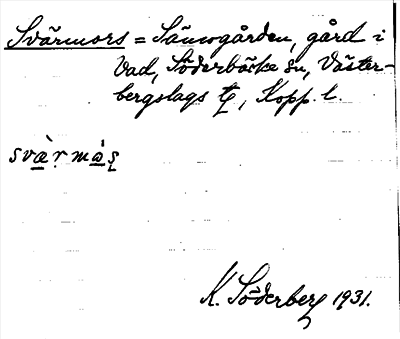 Svärmors = Sämsgården, gård i
Vad, Söderbärke sn, Väster-
bergslags tg, Kopp. l.
svär màs
K. Söderberg 1931.